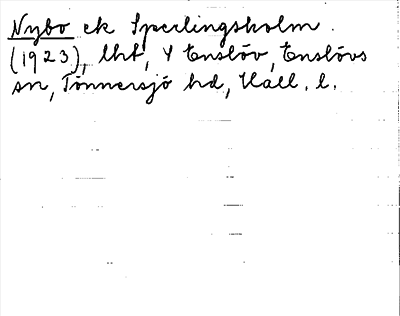 Nybo ek Sperlingsholm.
(1923), lht, Y Enslöv, Enslövs
sn, Tönnersjö hd, Hall. l.